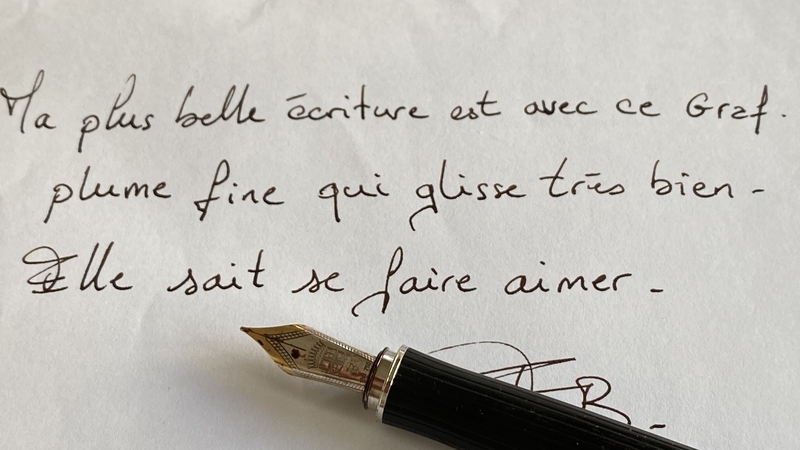 Ma plus belle écriture est avec ce Graf.
plume fine qui glisse très bien -
Elle sait se faire aimer -